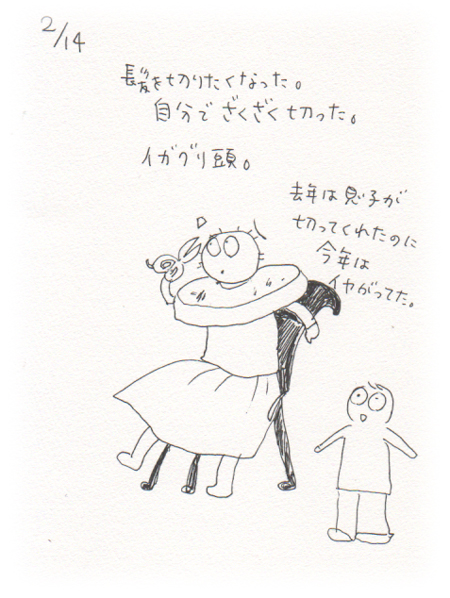 2/14
髪を切りたくなった。
自分でざくざく切った。
イガグリ頭。
去年は息子が
切ってくれたのに
今年は
イヤがってた。